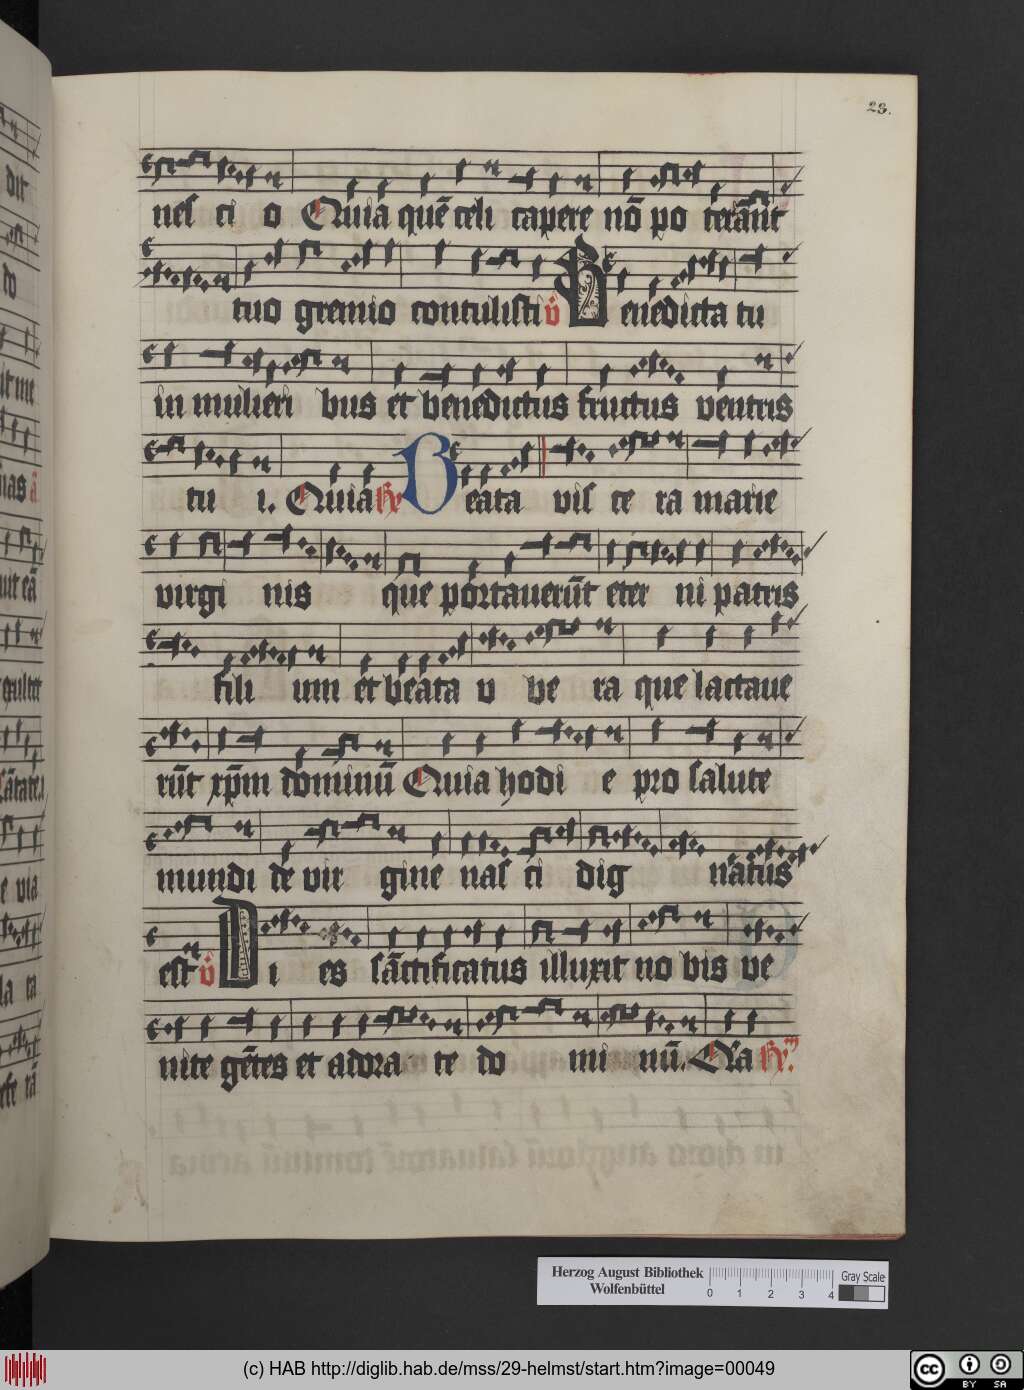 23.
nes ci o Quia quē celi capere nō po terāīt
tuo gremio contulisti v̊ Benedicta tu
in mulieri bus et benedictus fructus ventris
tu i. Quia R̷ Beata vis ce ra marie
virgi nis que portauerūt eter ni patris
fili um et beata v be ra que lactaue
rūt xp̄m dominū Quia hodi e pro salute
mundi de vir gine nas ci dig natus
est v̊ Di es sāctificatus illuxit no bis ve
nite gētes et adora te do mi nū. Q̄ia R̷m
dit
do
it me
uas ā
uit eā
la ra
e via
Herzog August Bibliothek
Wolfenbüttel
0 1 2 3 4
Gray Scale
(c) HAB http://diglib.hab.de/mss/29-helmst/start.htm?image=00049
cc BY SA